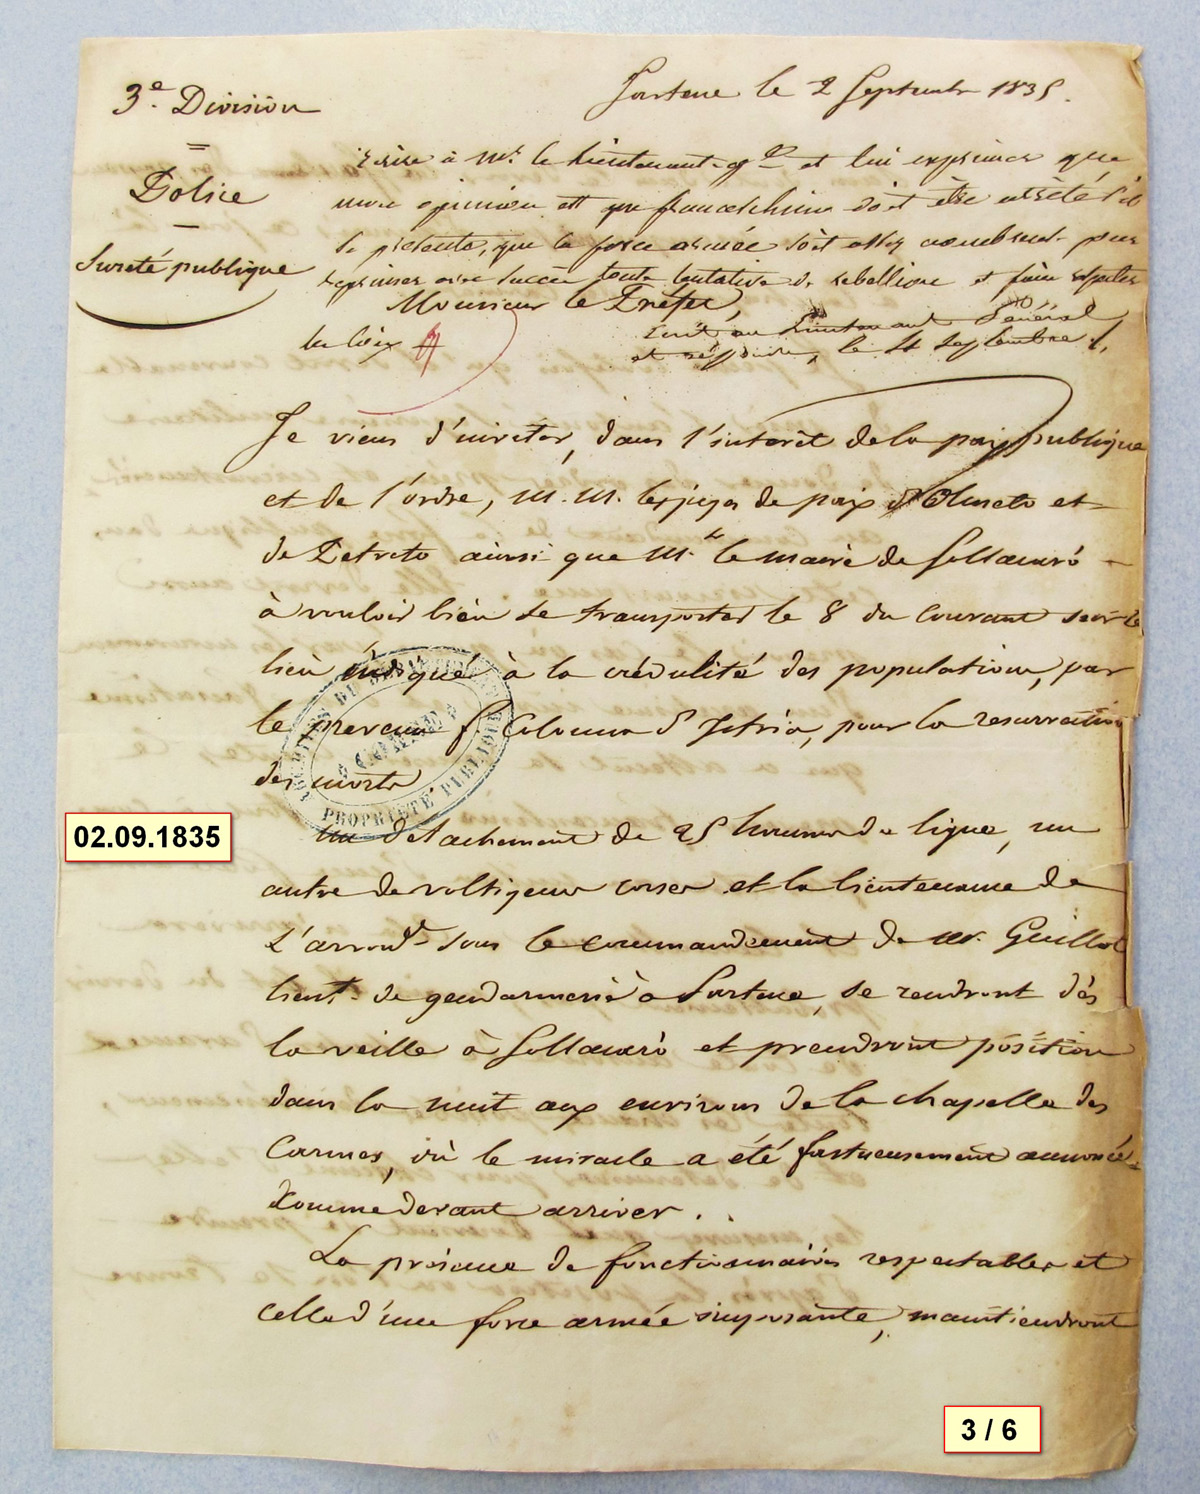 3e. Division
=
Police
–
Sureté publique
Sartene le 2 Septembre 1835.
Ecrire à Mr. le Lieutenant-gal et lui exprimer que
mon opinion est que franceschini doit être arrêté s'il
se présente, que la force armée soit assez nombreuse pour
reprimer avec succès toute tentative de rebellion et faire respecter
les lois
Monsieur le Préfet,
Ecrit au Lieutenant Général
et , le 4 Septembre
Je viens d'inviter, dans l'intérêt de la paix publique
et de l'ordre, M. M. les juges de paix d'Olmeto et
de Petreto ainsi que Mr. le maire de Sollacaró
à vouloir bien se transporter le 8 du courant sur le
lieu indiqué à la crédulité des populations, par
le prevenu f. Colonna d'Istria, pour la resurrection
des morts
Un detachement de 25 hommes de ligne, un
autre de voltigeurs corses et la lieutenance de
L'arrondt. sous le commandement de Mr. Guillot
lieut. de gendarmerie à Sartene, se rendront dès
la veille à Sollacaró et prendront position
dans la nuit aux environs de la chapelle des
Carmes, où le miracle a été fastueusement annoncé
comme devant arriver.
La présence de fonctionnaires respectables et
celle d'une force armée imposante, maintiendront
PROPRIÉTÉ PUBLIQUE
02.09.1835
3 / 6